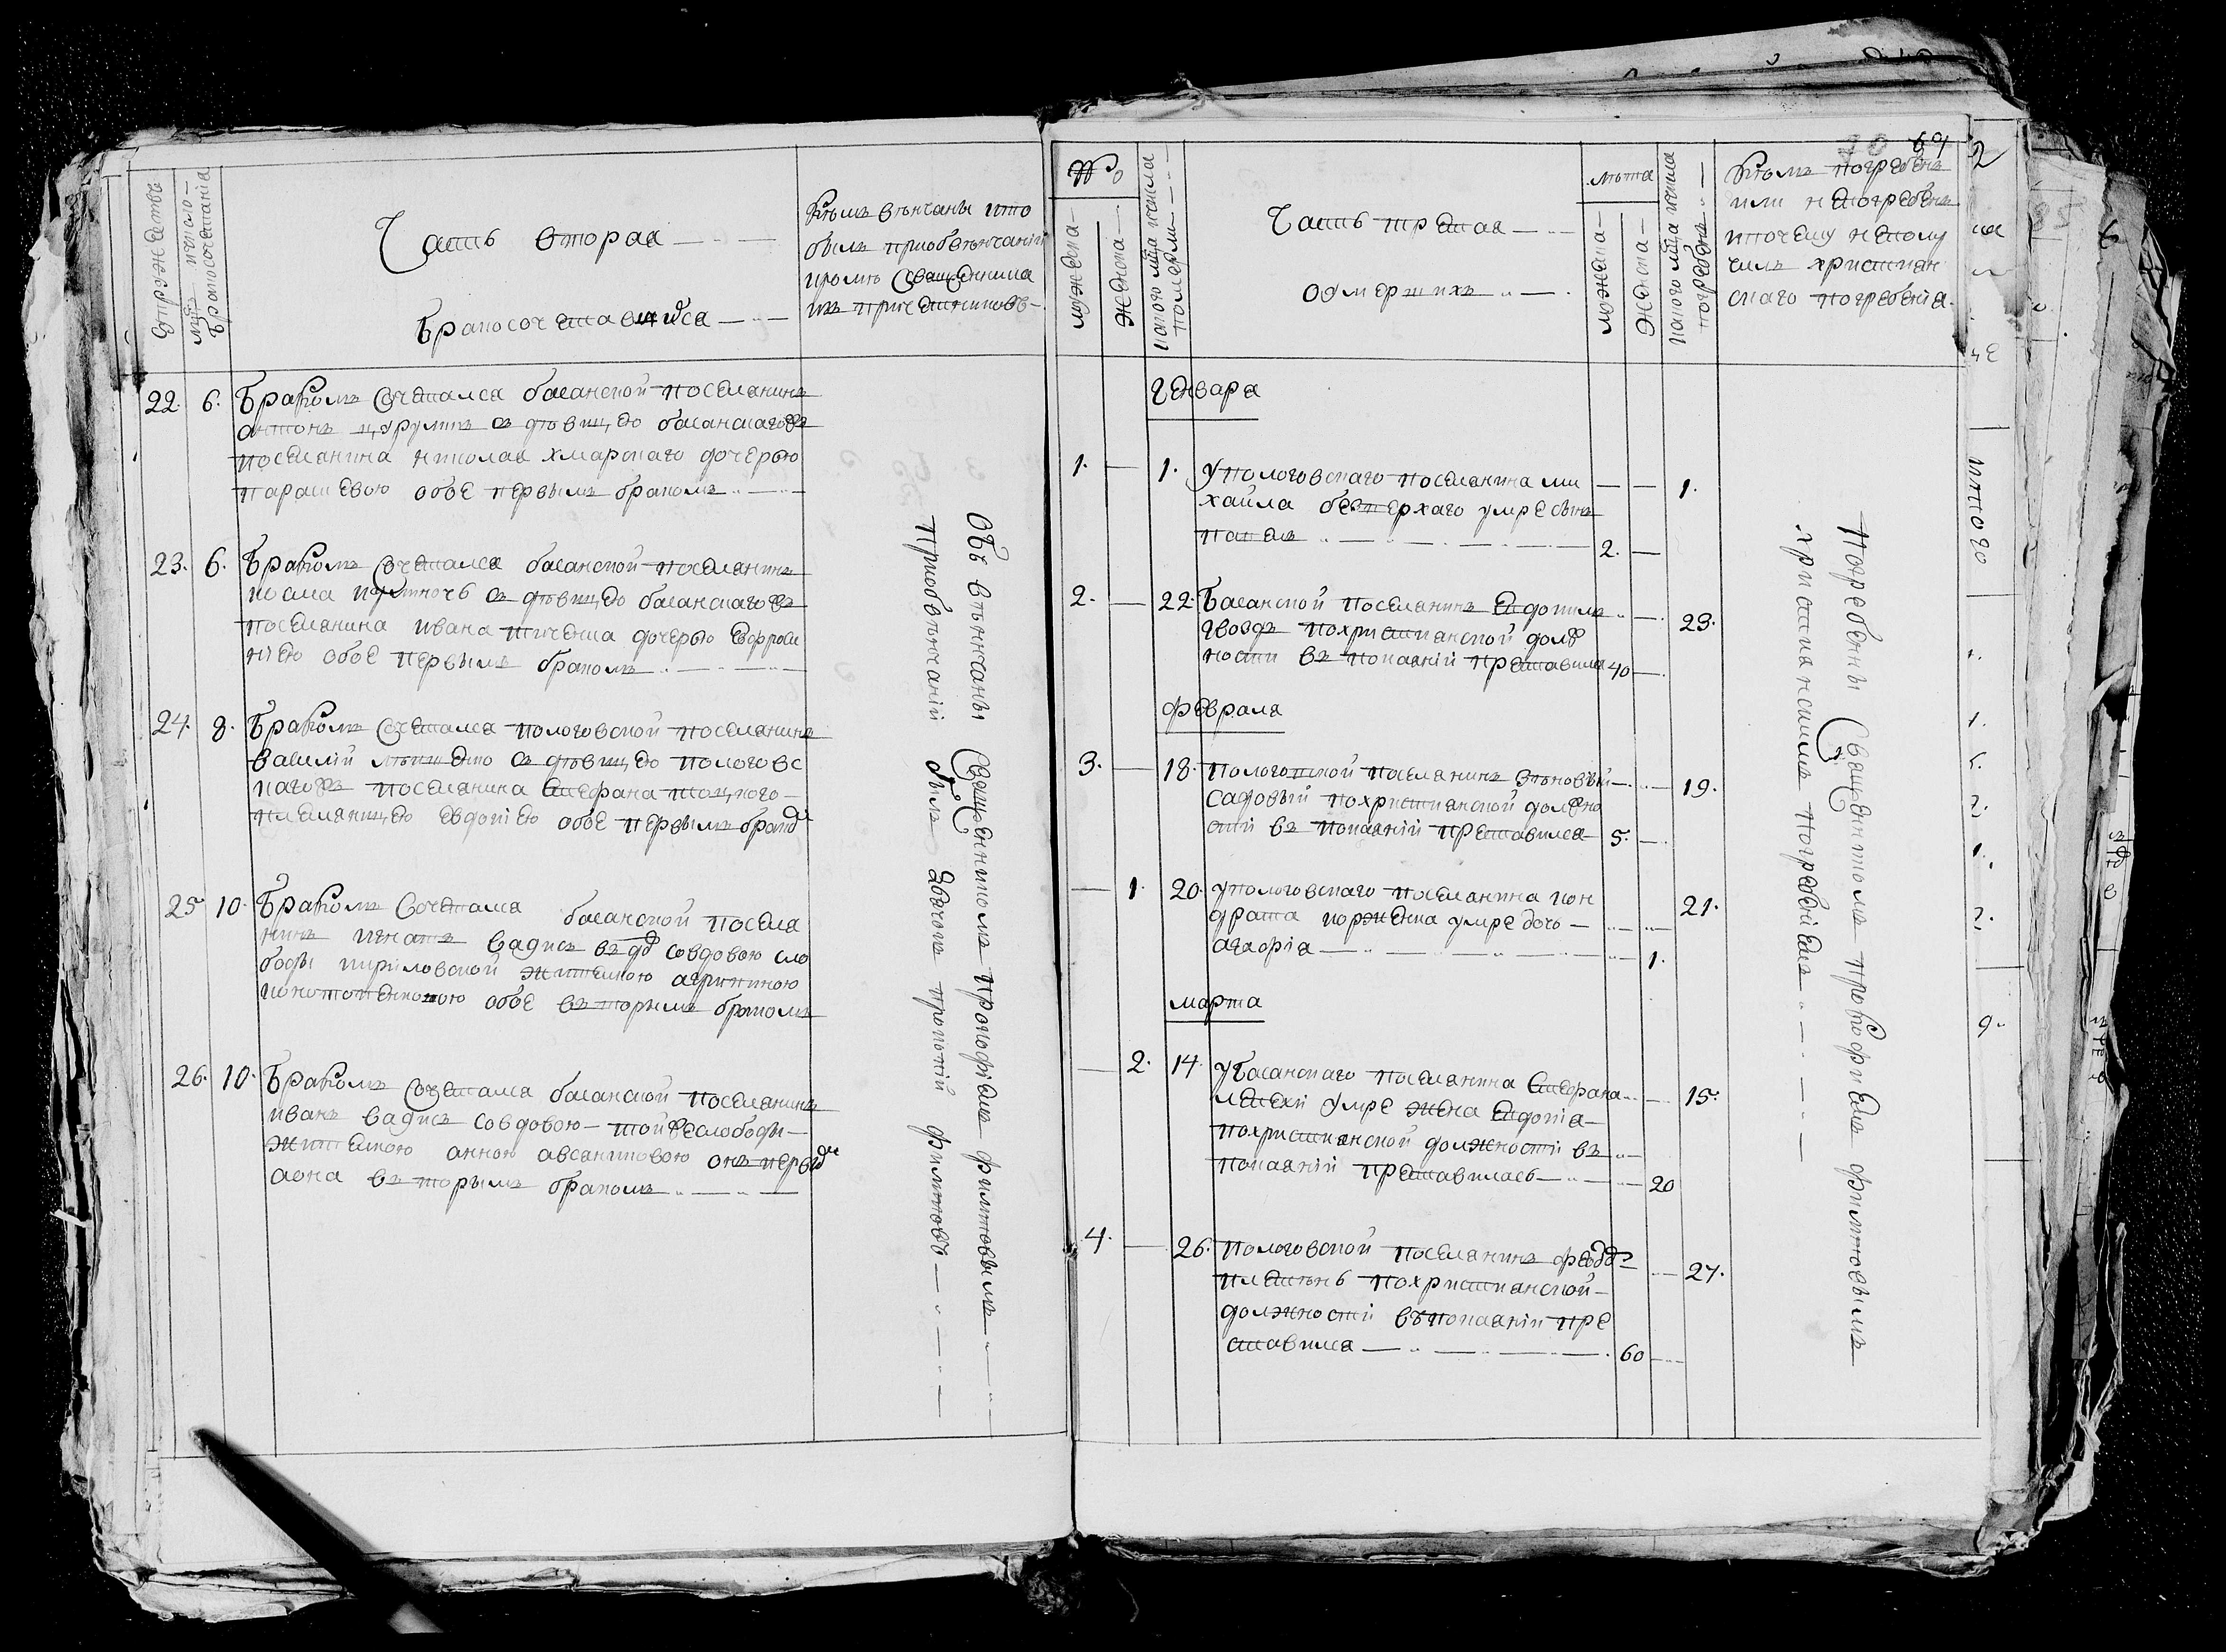 Супружествъ
мцъ и число
бракосочетанія
Часть вторая
бракосочетавшиſся
Кѣмъ вѣнчаны и кто
былъ при обвѣнчаніи
кромѣ Священника
изъ причетниковъ
22. 6. Бракомъ Сочетался басанской поселянинъ
антонъ цурупикъ съ дѣвицею басанскагожъ
поселянина николая хмарскаго дочерью
параскевою обое первымъ бракомъ
23. 6. Бракомъ Сочетался басанской поселянинъ
съ дѣвицею басанскагожъ
поселянина ивана дочерью Евфроси
ніею обое первымъ бракомъ
24. 8. Бракомъ Сочетался пологовской поселянинъ
василій съ дѣвицею пологовс
кагожъ поселянина Стефана тоцкого
племяницею евдокіею обое первымъ бракомъ
25 10. Бракомъ Сочетался басанской поселя
нинъ игнатъ бадисъ со вдовою сло
боды кириловской жителкою агрипиною
обое вторымъ бракомъ
26. 10. Бракомъ Сочетался басанской поселянинъ
иванъ бадисъ со вдовою той же слободы
жителкою анною авсаниковою онъ первы
а она вторымъ бракомъ
Объ вѣнчаны Священникомъ Прокофіемъ филиповымъ
При обвѣнчаніи былъ дьячокъ прокопій филиповъ
69
№
мужеска
женска
кого мца и числа
померли
Часть третая
о умершихъ
лѣта
мужеска
женска
кого мца и числа
погребенъ
Кѣмъ погребенъ
или не погребенъ
и почему не полу
чилъ християн
скаго погребенія
Генваря
1. 1. у пологовскаго поселянина ми
хайла безверхаго умре сынъ
1.
2.
2. 22. Басанской поселянинъ Евдокимъ
гвоздь по християнской долж
23.
ности въ покаяніи преставился 40
февраля
3. 18. пологовской поселянинъ зѣновѣй
19.
садовый по християнской должно
сти въ покаяніи преставился 5.
1. 20. у пологовскаго поселянина кон
драта коржена умре дочь
21.
агафія 1.
марта
2. 14. у басанскаго поселянина Стефана
15.
умре жена Евдокіа
по християнской должности въ
покаяніи преставилась 20
4. 26. пологовской поселянинъ федо
27.
по християнской
должности въ покаяніи пре
ставился 60
Погребены Священникомъ прокофиемъ филиповымъ
християнскимъ погребеніемъ